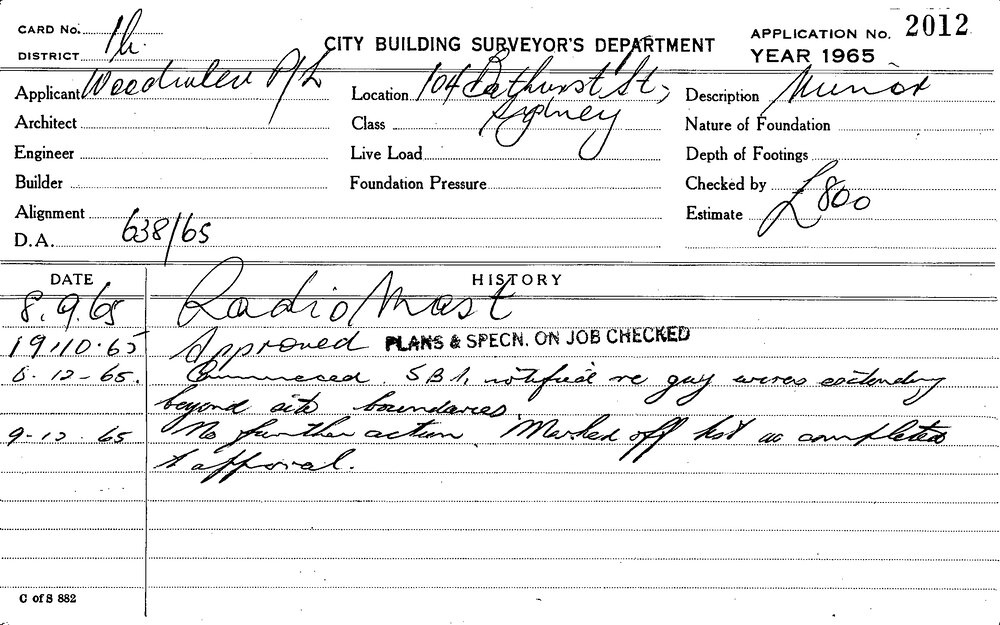 CARD No. 1h.
DISTRICT
CITY BUILDING SURVEYOR'S DEPARTMENT
APPLICATION No. 2012
YEAR 1965
Applicant P/L
Location 104 Bathurst St,
Sydney
Description Minor
Architect
Class
Nature of Foundation
Engineer
Live Load
Depth of Footings
Builder
Foundation Pressure
Checked by
Alignment
Estimate £800
D.A. 638/65
DATE HISTORY
8.9.65 Radio Mast
19.10.65 Approved PLANS & SPECN. ON JOB CHECKED
8-12-65. Commenced. notified re guy wires extending
beyond site boundaries.
9-12.65 No further action. Marked off list as completed
& apporal.
C of S 882